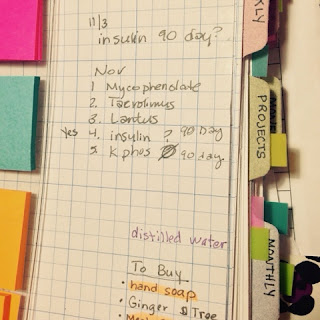 11/3
insulin 90 day?
Nov
1 Mycophenolate
2. Tacrolimus
3. Lantus
yes 4. insulin ? 90 Day
5. K phos 90 day
distilled water
To Buy
• hand soap
• Ginger Tree
KLY
PROJECTS
MONTHLY